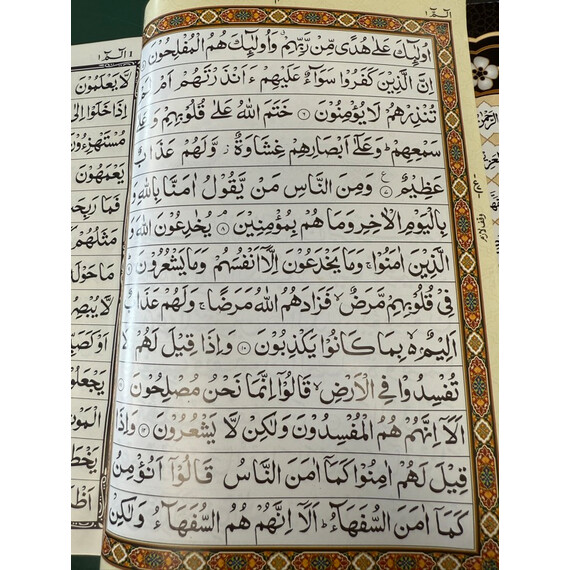 الٓمّٓ ١
اُولٰٓئِكَ عَلٰى هُدًى مِّنْ رَّبِّهِمْ ۗ وَاُولٰٓئِكَ هُمُ الْمُفْلِحُوْنَ ٥
اِنَّ الَّذِيْنَ كَفَرُوْا سَوَآءٌ عَلَيْهِمْ ءَاَنْذَرْتَهُمْ اَمْ
تُنْذِرْهُمْ لَا يُؤْمِنُوْنَ ٦ خَتَمَ اللّٰهُ عَلٰى قُلُوْبِهِمْ وَعَلٰى
سَمْعِهِمْ ؕ وَعَلٰٓى اَبْصَارِهِمْ غِشَاوَةٌ ز وَّلَهُمْ عَذَابٌ
عَظِيْمٌ ٧ ع وَمِنَ النَّاسِ مَنْ يَّقُوْلُ اٰمَنَّا بِاللّٰهِ وَ
بِالْيَوْمِ الْاٰخِرِ وَمَا هُمْ بِمُؤْمِنِيْنَ ٨ يُخٰدِعُوْنَ اللّٰهَ وَ
الَّذِيْنَ اٰمَنُوْا ۚ وَمَا يَخْدَعُوْنَ اِلَّآ اَنْفُسَهُمْ وَمَا يَشْعُرُوْنَ ٩
فِيْ قُلُوْبِهِمْ مَّرَضٌ ۙ فَزَادَهُمُ اللّٰهُ مَرَضًا ۚ وَلَهُمْ عَذَابٌ
اَلِيْمٌ ۢ ۙ بِمَا كَانُوْا يَكْذِبُوْنَ ١٠ وَاِذَا قِيْلَ لَهُمْ لَا
تُفْسِدُوْا فِي الْاَرْضِ ۙ قَالُوْٓا اِنَّمَا نَحْنُ مُصْلِحُوْنَ
اَلَآ اِنَّهُمْ هُمُ الْمُفْسِدُوْنَ وَلٰكِنْ لَّا يَشْعُرُوْنَ ١٢ وَاِذَا
قِيْلَ لَهُمْ اٰمِنُوْا كَمَآ اٰمَنَ النَّاسُ قَالُوْٓا اَنُؤْمِنُ
كَمَآ اٰمَنَ السُّفَهَآءُ ؕ اَلَآ اِنَّهُمْ هُمُ السُّفَهَآءُ وَلٰكِنْ
الٓمّٓ ١
لَا يَعْلَمُوْنَ
اِذَا خَلَوْا اِلٰى
مُسْتَهْزِءُوْنَ
يَعْمَهُوْنَ
فَمَا رَبِحَتْ
مَثَلُهُمْ
مَا حَوْلَهٗ
لَا يُبْصِرُ
اَوْ كَصَيِّبٍ
يَجْعَلُوْنَ
الْمَوْتِ
يَخْطَفُ